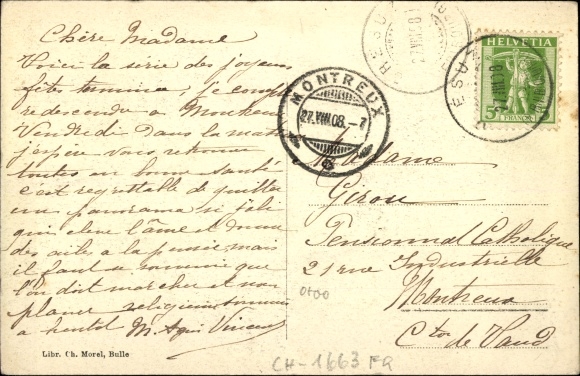 Chère Madame
Voici la série des joyeuses
fêtes terminée ; je compte
redescendre à Montreux
Vendredi dans la matinée
j'espère vous retrouver
toutes en bonne santé
c'est regrettable de quitter
un panorama si joli
qui élève l'âme et donne
des ailes à la pensée mais
il faut se souvenir que
l'on doit marcher et non
planer religieusement
à bientôt M. Vincent
Libr. Ch. Morel, Bulle
MONTREUX
27.VIII.08.-7
HELVETIA
5
FRANCO
Madame
Girou
Pensionnat Catholique
21 rue Industrielle
Montreux
Cton de Vaud
CH-1663 FG